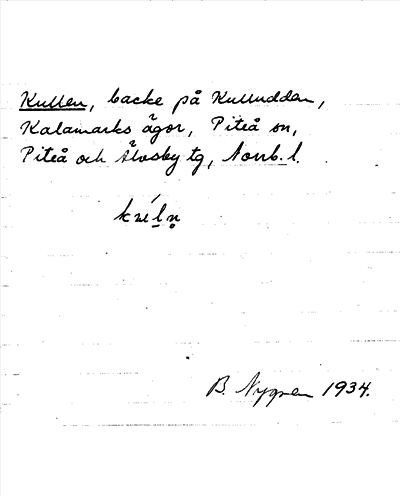 Kullen, backe på Kulludden,
Kalamarks ägor, Piteå sn,
Piteå och Älvsby tg, Norrb. l.
B. Nygren 1934.